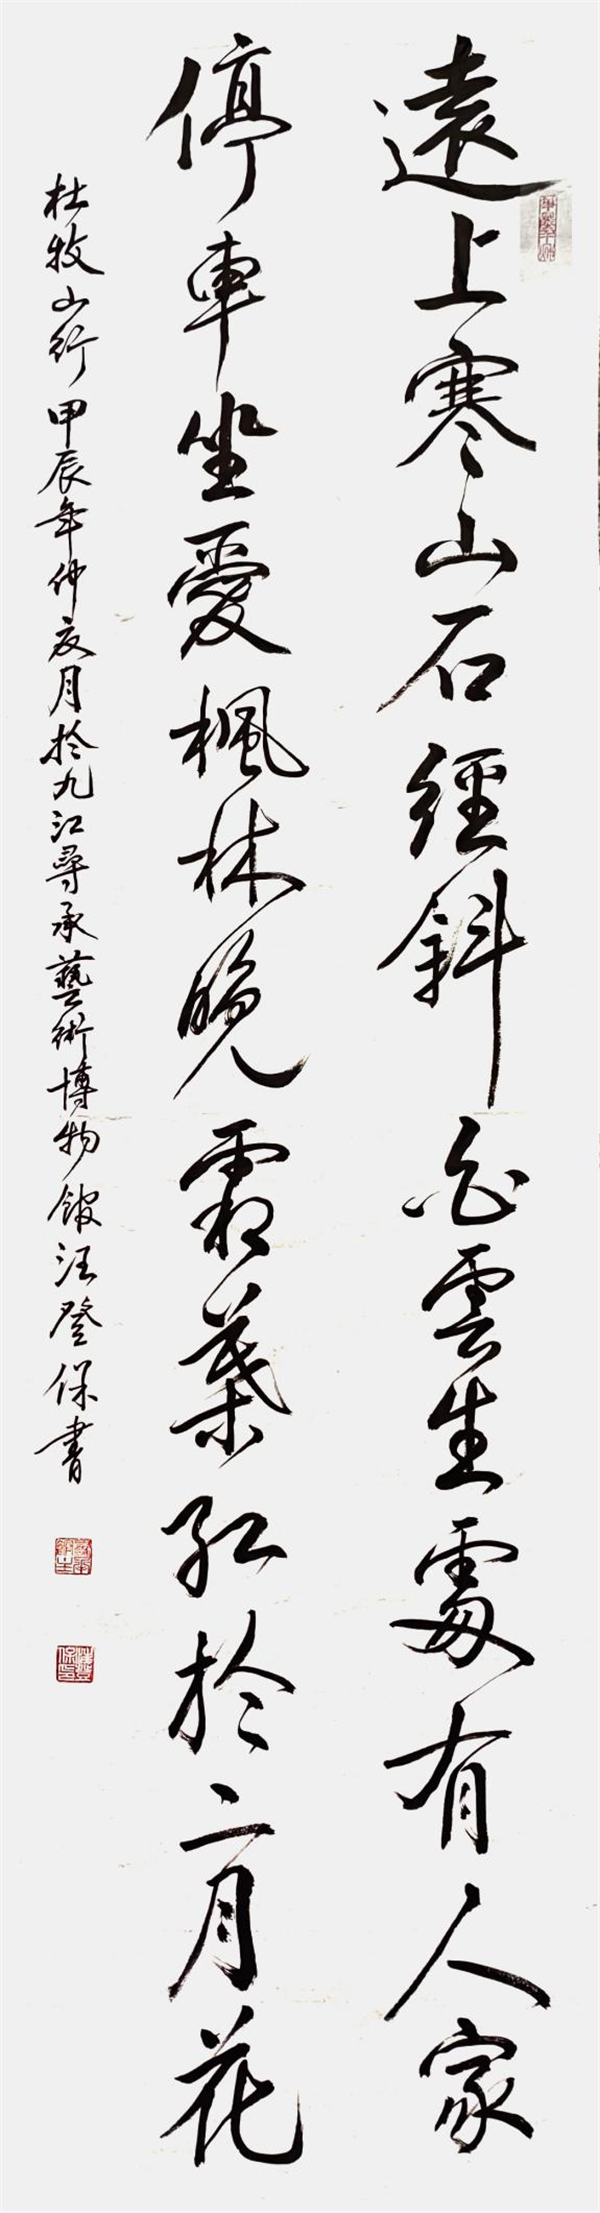 遠上寒山石經斜白雲生處有人家
停車坐愛楓林晚霜葉紅於二月花
杜牧山行甲辰年仲夏月於九江尋承藝術博物館汪登保書